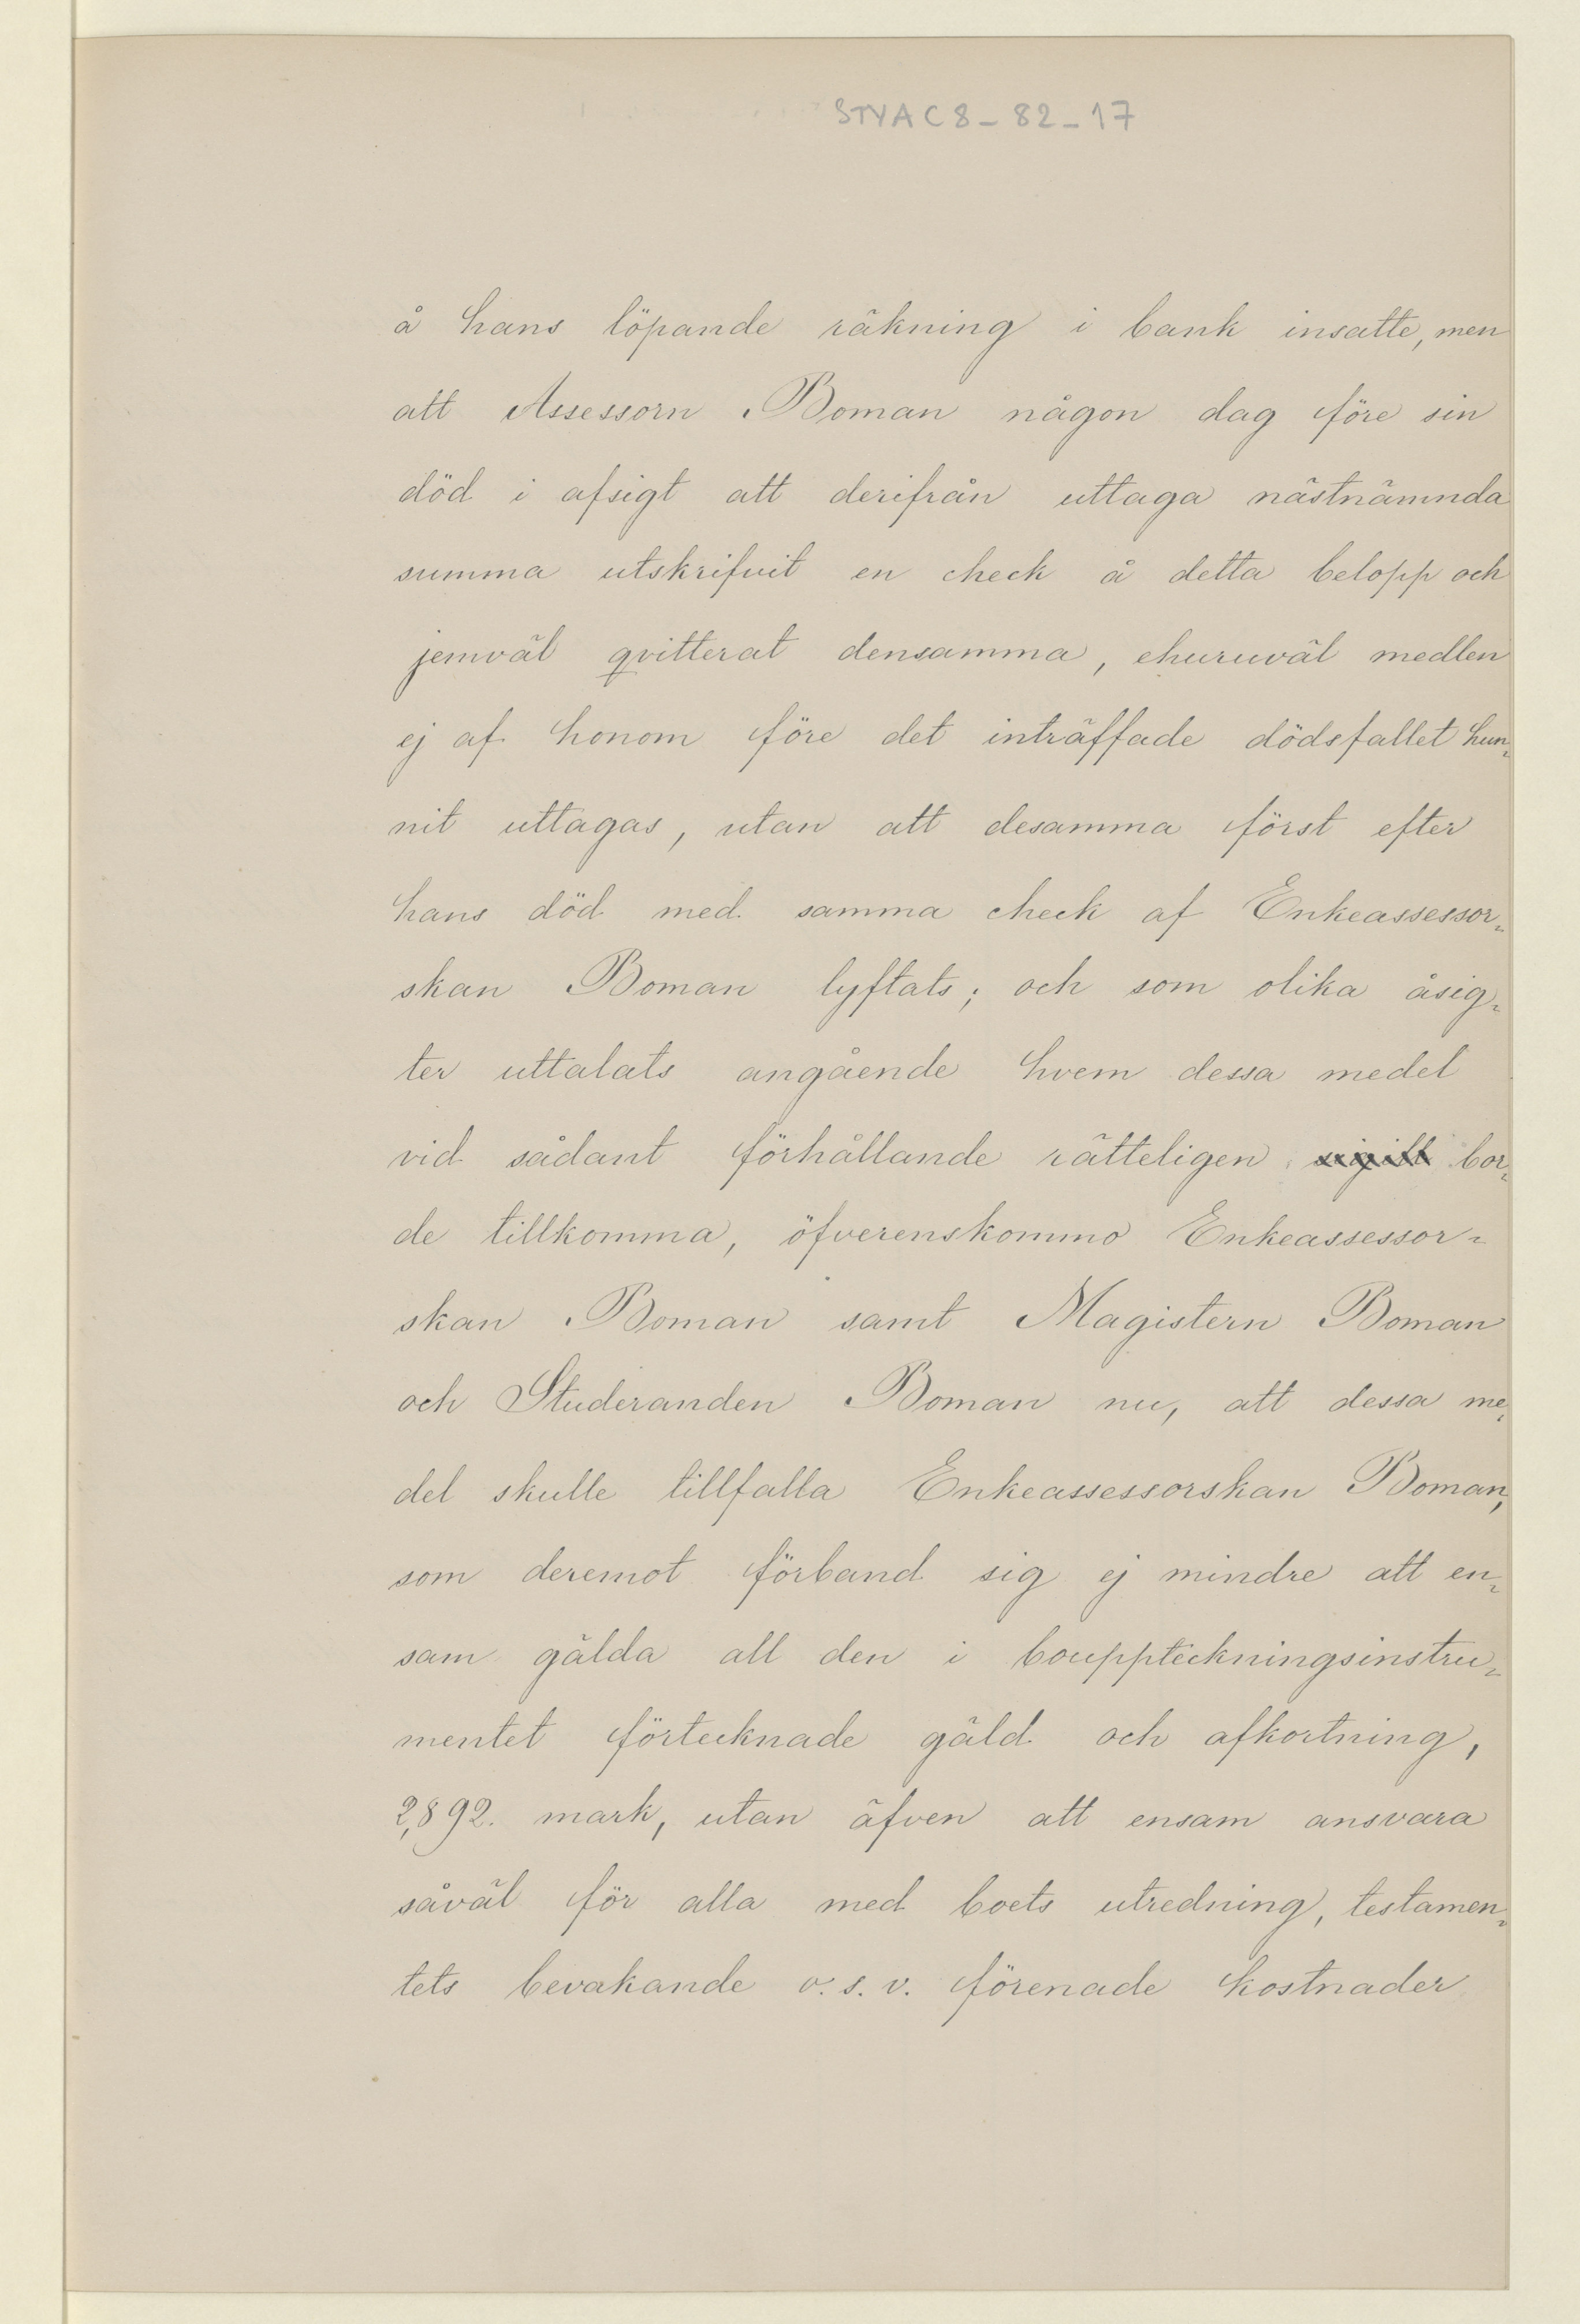 STYAC8-82-17
å hans löpande räkning i bank insatte, men
att Assessorn Boman någon dag före sin
död i afsigt att derifrån uttaga nästnämnda
summa utskrifvit en check å detta belopp och
jemväl qvitterat densamma, ehuruväl medlen
ej af honom före det inträffade dödsfallet hun-
nit uttagas, utan att desamma först efter
hans död med samma check af Enkeassessor-
skan Boman lyftats; och som olika åsig-
ter uttalats angående hvem dessa medel
vid sådant förhållande rätteligen bor-
de tillkomma, öfverenskommo Enkeassessor-
skan Boman samt Magistern Boman
och Studeranden Boman nu, att dessa me-
del skulle tillfalla Enkeassessorskan Boman,
som deremot förband sig ej mindre att en-
sam gälda all den i bouppteckningsinstru-
mentet förtecknade gäld och afkortning,
2,892. mark, utan äfven att ensam ansvara
såväl för alla med boets utredning, testamen-
tets bevakande o. s. v. förenade kostnader